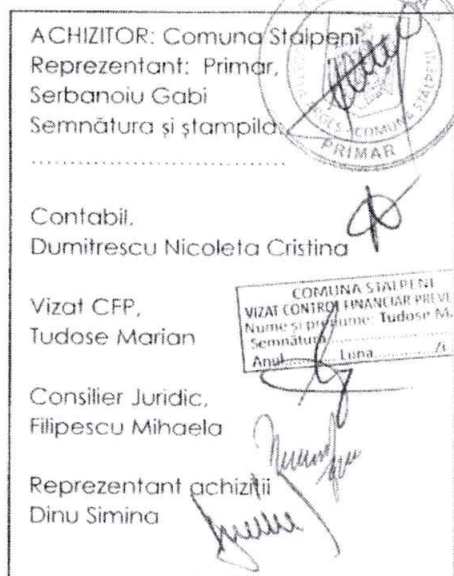 ACHIZITOR: Comuna Stalpeni
Reprezentant: Primar,
Serbanoiu Gabi
Semnătura și ștampila
..............................
COMUNA STALPENI
PRIMAR
Contabil.
Dumitrescu Nicoleta Cristina
Vizat CFP,
Tudose Marian
COMUNA STALPENI
VIZAT CONTROL FINANCIAR PREVE
Nume și prenume: Tudose M.
Semnătura
Anul............ Luna............ Zi
Consilier Juridic,
Filipescu Mihaela
Reprezentant achiziții
Dinu Simina